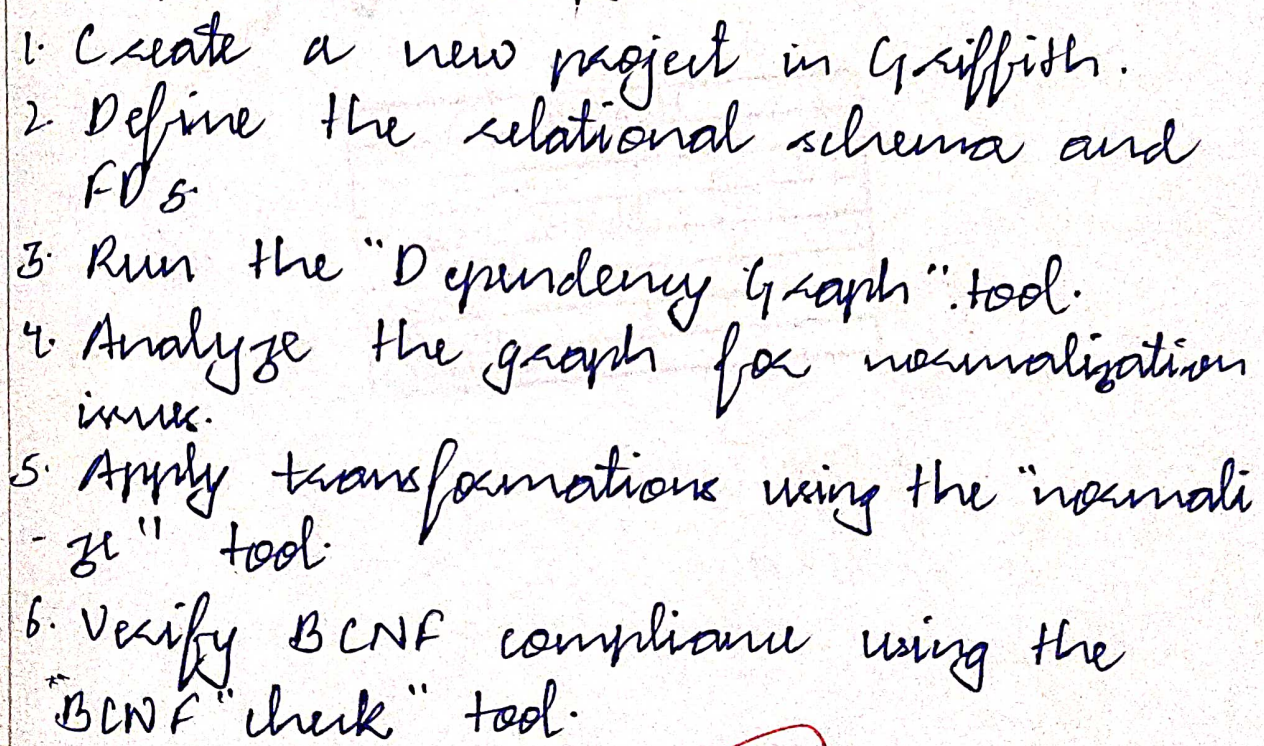 1. Create a new project in Griffith.
2. Define the relational schema and
FDs.
3. Run the "Dependency Graph". tool.
4. Analyze the graph for normalization
issues.
5. Apply transformations using the "normali
-ze" tool.
6. Verify BCNF compliance using the
"BCNF "check" tool.